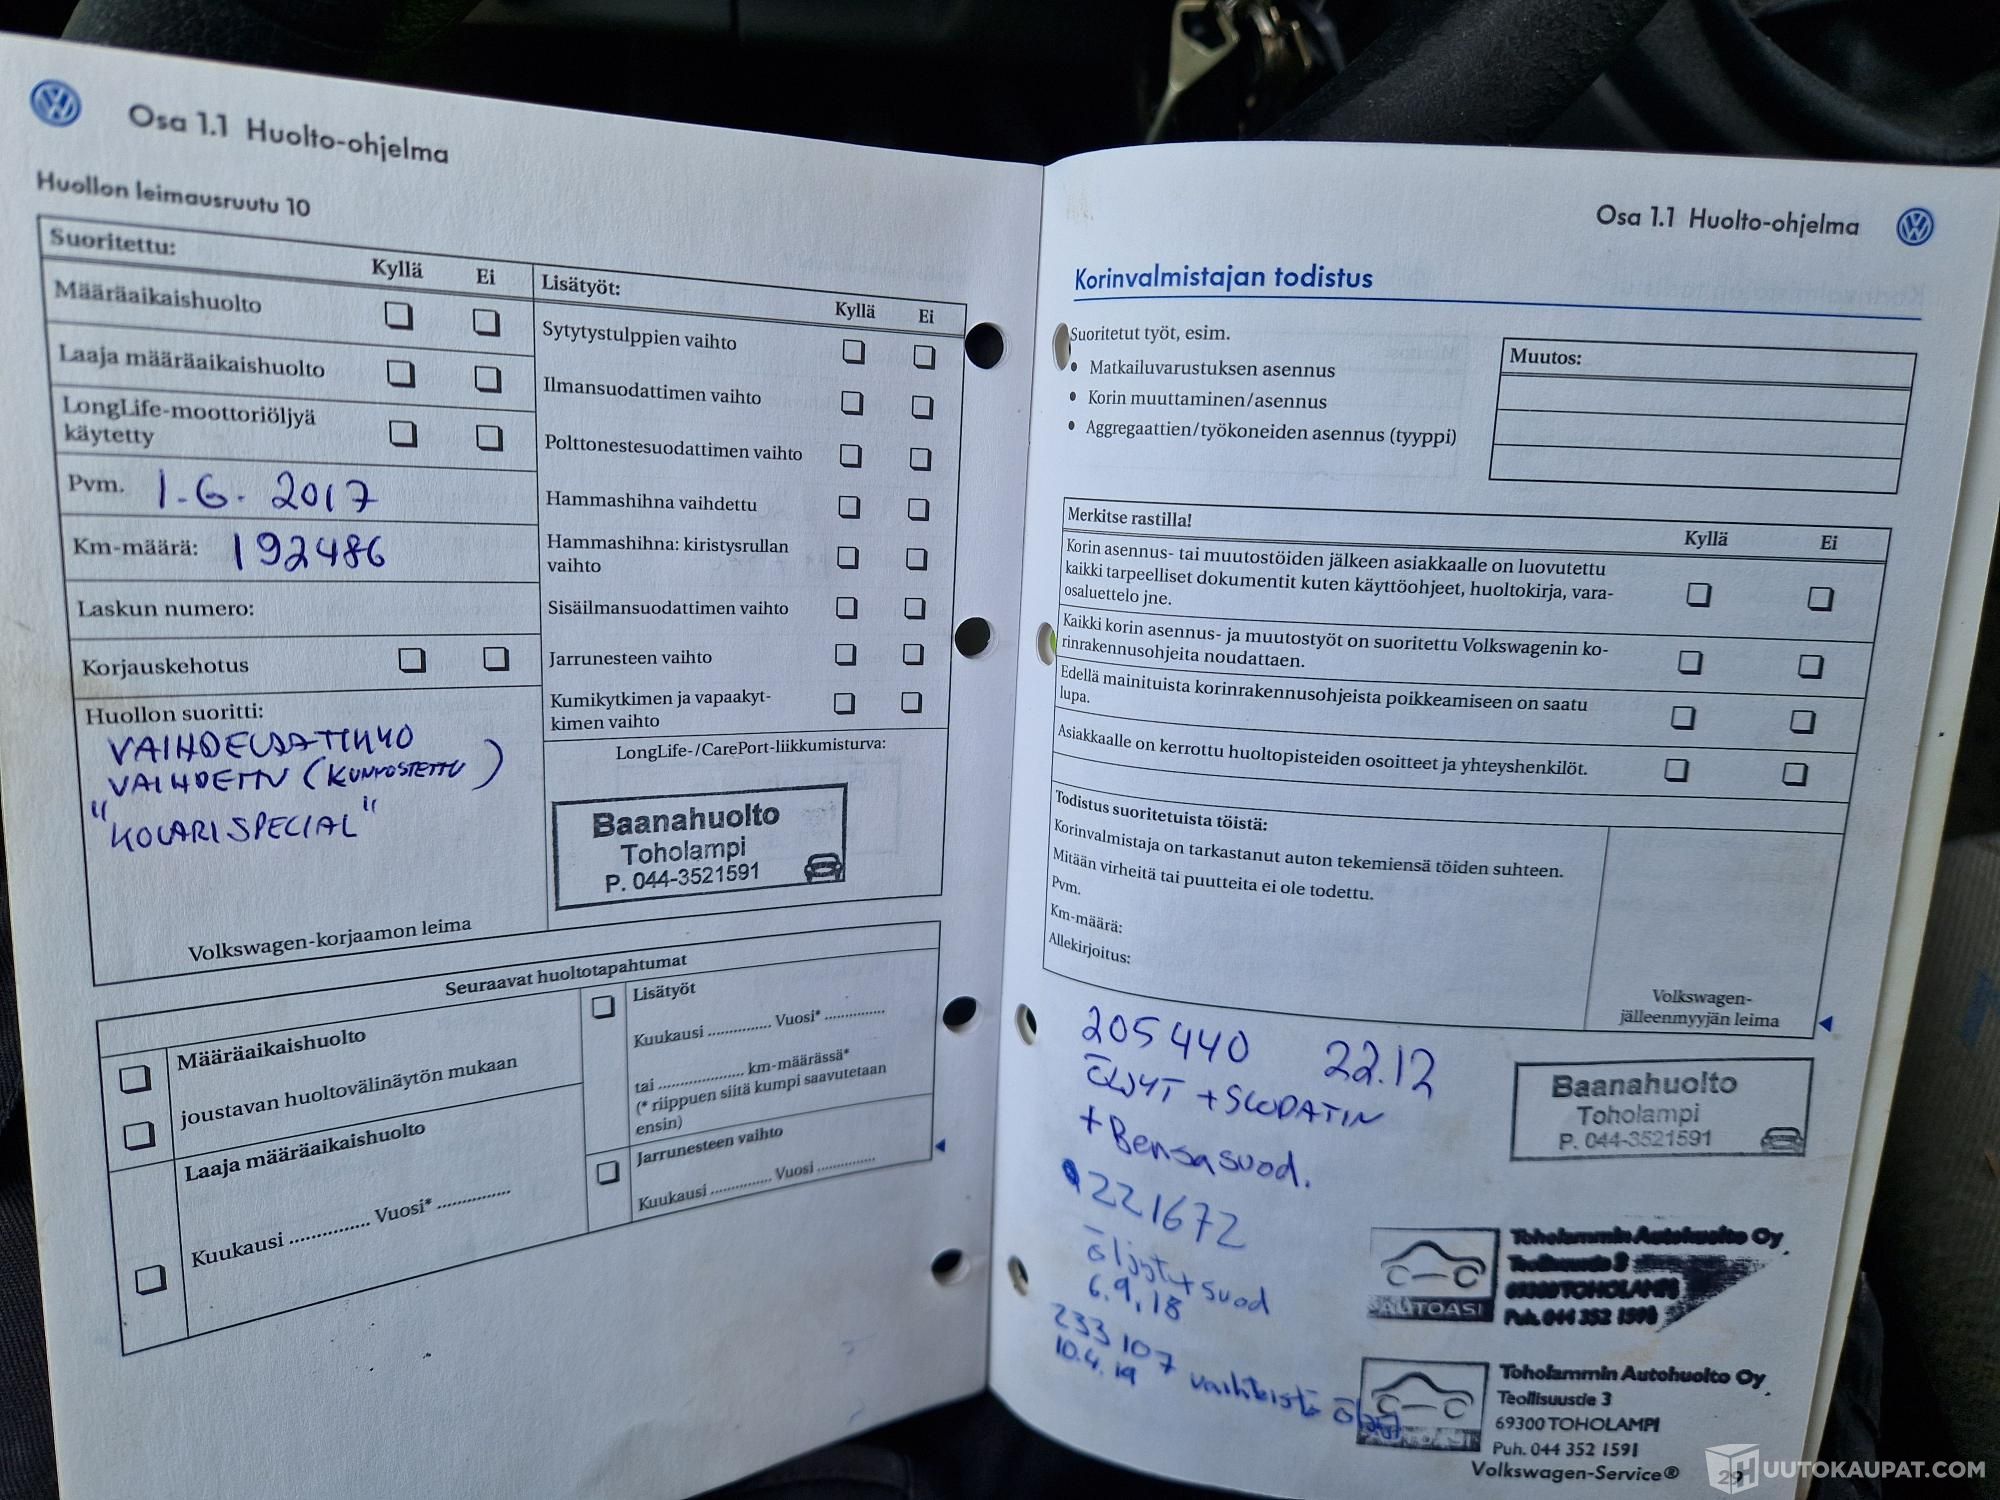 Osa 1.1 Huolto-ohjelma
Huollon leimausruutu 10
Suoritettu:
Kyllä Ei
Määräaikaishuolto
Laaja määräaikaishuolto
LongLife-moottoriöljyä
käytetty
Pvm. 1.6.2017
Km-määrä: 192486
Laskun numero:
Korjauskehotus
Huollon suoritti:
VAIHDELAATIKKO
VAIHDETTU (KUNNOSTETTU)
"KOLARISPECIAL"
Volkswagen-korjaamon leima
Lisätyöt:
Kyllä Ei
Sytytystulppien vaihto
Ilmansuodattimen vaihto
Polttonestesuodattimen vaihto
Hammashihna vaihdettu
Hammashihna: kiristysrullan
vaihto
Sisäilmansuodattimen vaihto
Jarrunesteen vaihto
Kumikytkimen ja vapaakyt-
kimen vaihto
LongLife-/CarePort-liikkumisturva:
Baanahuolto
Toholampi
P. 044-3521591
Seuraavat huoltotapahtumat
Määräaikaishuolto
joustavan huoltovälinäytön mukaan
Laaja määräaikaishuolto
Kuukausi .............. Vuosi* ..............
Lisätyöt
Kuukausi .............. Vuosi* ..............
tai .................... km-määrässä*
(* riippuen siitä kumpi saavutetaan
ensin)
Jarrunesteen vaihto
Kuukausi .............. Vuosi ..............
Osa 1.1 Huolto-ohjelma
Korinvalmistajan todistus
Suoritetut työt, esim.
• Matkailuvarustuksen asennus
• Korin muuttaminen/asennus
• Aggregaattien/työkoneiden asennus (tyyppi)
Muutos:
Merkitse rastilla!
Kyllä Ei
Korin asennus- tai muutostöiden jälkeen asiakkaalle on luovutettu
kaikki tarpeelliset dokumentit kuten käyttöohjeet, huoltokirja, vara-
osaluettelo jne.
Kaikki korin asennus- ja muutostyöt on suoritettu Volkswagenin ko-
rinrakennusohjeita noudattaen.
Edellä mainituista korinrakennusohjeista poikkeamiseen on saatu
lupa.
Asiakkaalle on kerrottu huoltopisteiden osoitteet ja yhteyshenkilöt.
Todistus suoritetuista töistä:
Korinvalmistaja on tarkastanut auton tekemiensä töiden suhteen.
Mitään virheitä tai puutteita ei ole todettu.
Pvm.
Km-määrä:
Allekirjoitus:
Volkswagen-
jälleenmyyjän leima
205440 22.12
ÖLJYT + SUODATIN
+ Bensasuod.
Baanahuolto
Toholampi
P. 044-3521591
221672
öljyt + suod
6.9.18
Toholammin Autohuolto Oy
Teollisuustie 3
69300 TOHOLAMPI
Puh. 044 352 1591
AUTOASI
233107 vaihteisto öljyt
10.4.19
Toholammin Autohuolto Oy
Teollisuustie 3
69300 TOHOLAMPI
Puh. 044 352 1591
Volkswagen-Service® 29
HUUTOKAUPAT.COM